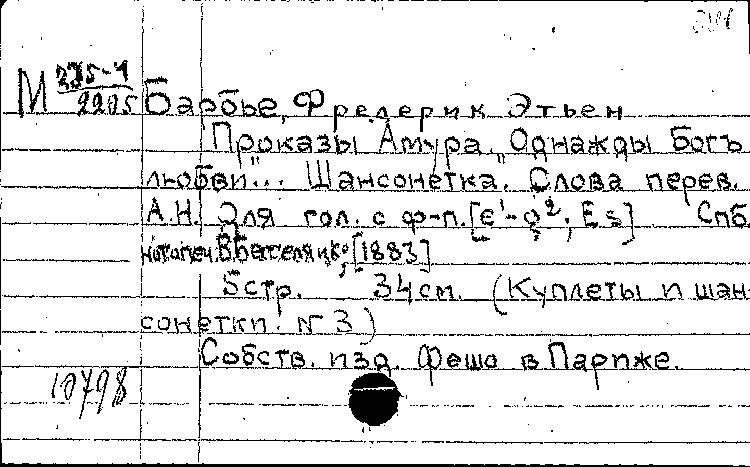 М 235-4/2205 Барбье, Фредерик Этьен
Проказы Амура. "Однажды Богъ
любви"... Шансонетка. Слова перев.
А.Н. Для гол. с ф-п. [e¹-g²; Es] Спб.
нотопеч. В. Бесселя и К°, [1883]
5 стр. 34 см. (Куплеты и шан-
сонетки. № 3)
Собств. изд. Фешо в Париже.
10798